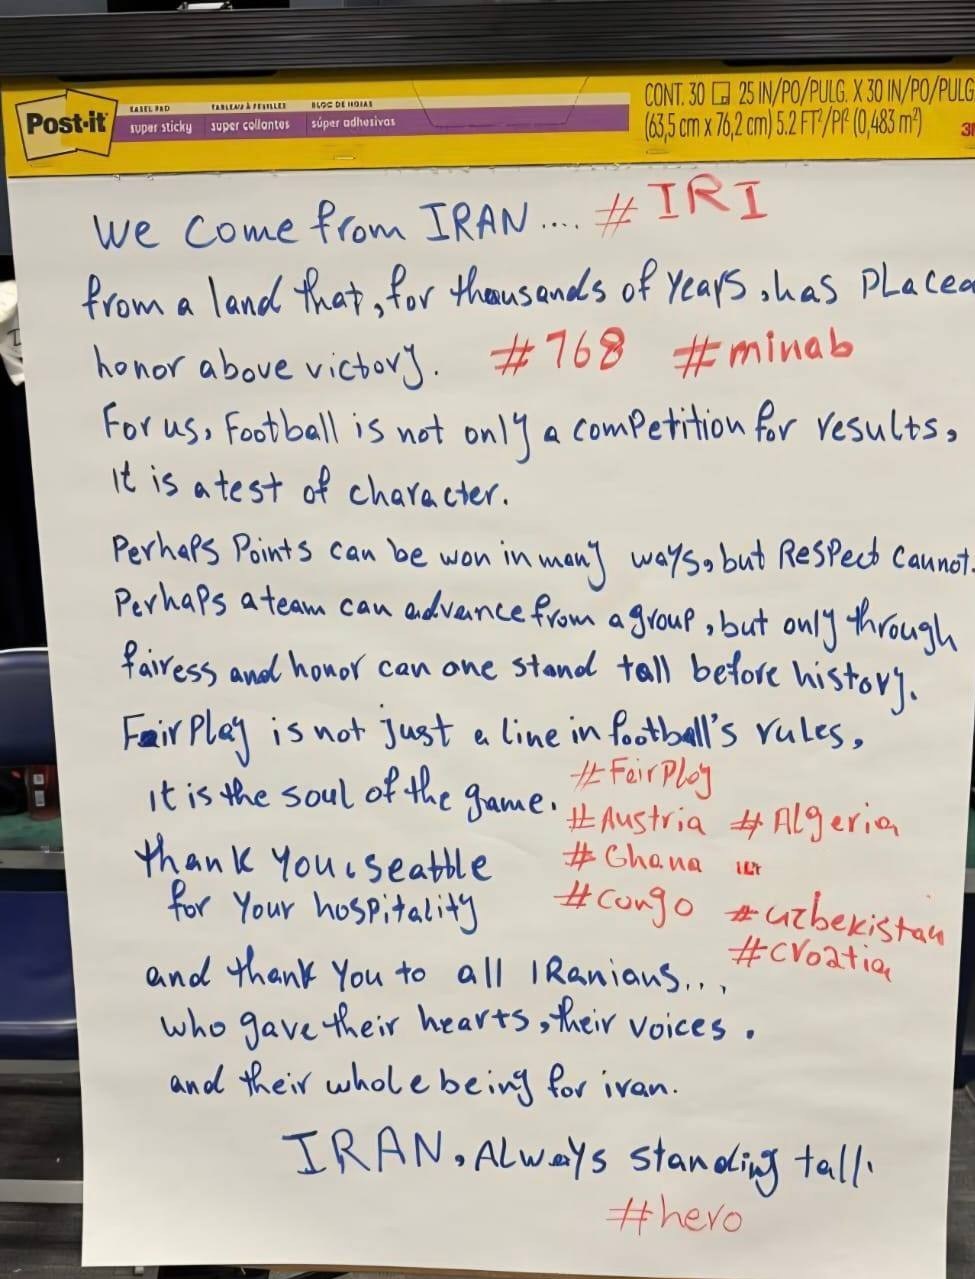 Post-it
EASEL PAD
super sticky
TABLEAU À FEUILLES
super collantes
BLOC DE HOJAS
súper adhesivas
CONT. 30 25 IN/PO/PULG. X 30 IN/PO/PULG
(63,5 cm x 76,2 cm) 5.2 FT²/PI² (0,483 m²)
3M
We come from IRAN .... #IRI
from a land that, for thousands of years, has Placed
honor above victory. #768 #minab
For us, Football is not only a competition for results,
It is a test of character.
Perhaps Points can be won in many ways, but Respect cannot.
Perhaps a team can advance from a group, but only through
fairess and honor can one stand tall before history.
Fair Play is not just a line in football's rules,
it is the soul of the game. #FairPlay
#Austria #Algeria
thank you, seattle #Ghana
for Your hospitality #congo #uzbekistan
#croatia
and thank You to all IRanians...,
who gave their hearts, their voices.
and their whole being for iran.
IRAN, Always standing tall.
#hero